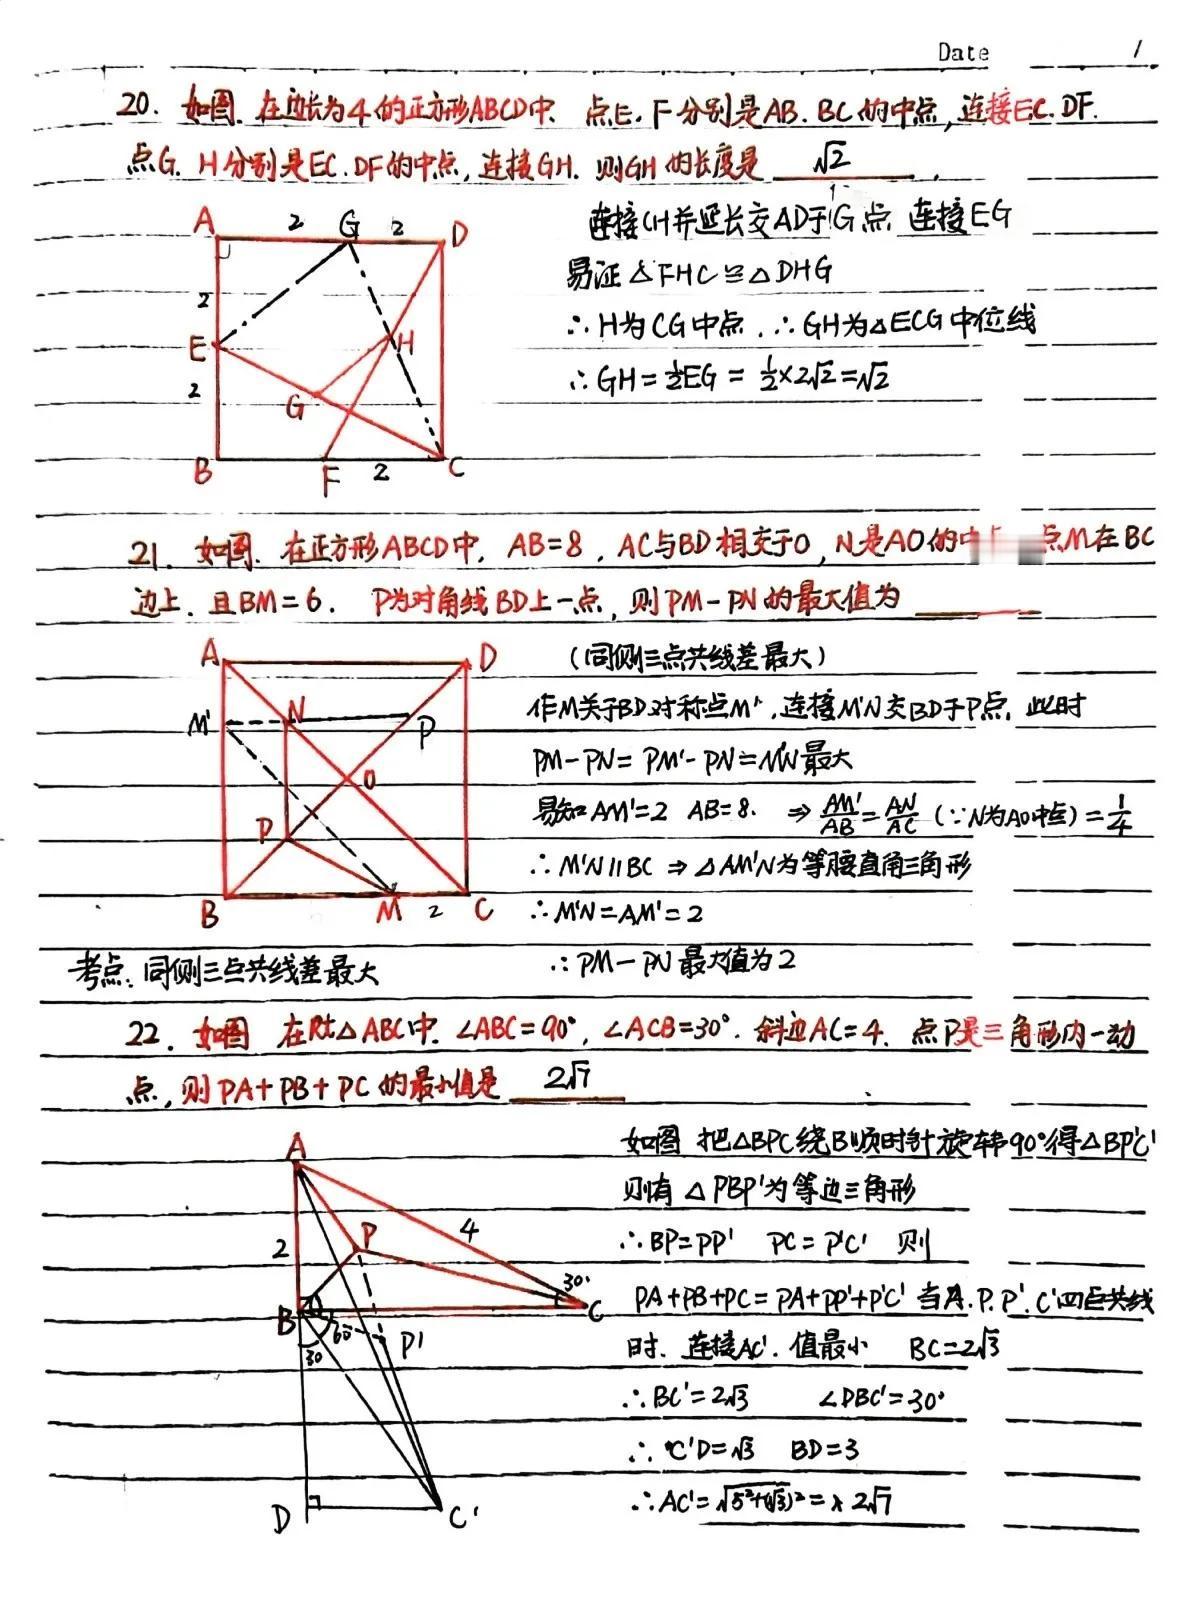 Date 1
20. 如图. 在边长为4的正方形ABCD中. 点E. F分别是AB. BC的中点, 连接EC. DF.
点G. H分别是EC. DF的中点, 连接GH. 则GH的长度是 √2 .
连接CH并延长交AD于G'点 连接EG
易证△FHC≌△DHG
∴H为CG中点. ∴GH为△ECG中位线
∴GH=½EG=½×2√2=√2
A 2 G 2 D
2
E H
2 G
B F 2 C
21. 如图. 在正方形ABCD中, AB=8, AC与BD相交于O, N是AO的中 点M在BC
边上. 且BM=6. P为对角线BD上一点, 则PM-PN的最大值为
(同侧三点共线差最大)
作M关于BD对称点M', 连接M'N交BD于P点. 此时
PM-PN=PM'-PN=M'N最大
易知AM'=2 AB=8. ⇒ AM'/AB=AN/AC (∵N为AO中点)=1/4
∴M'N∥BC ⇒△AM'N为等腰直角三角形
∴M'N=AM'=2
∴PM-PN最大值为2
A D
M' N P
O
P
B M 2 C
考点: 同侧三点共线差最大
22. 如图 在Rt△ABC中. ∠ABC=90°, ∠ACB=30°. 斜边AC=4. 点P是三角形内一动
点, 则PA+PB+PC的最小值是 2√7
如图 把△BPC绕B顺时针旋转90°得△BP'C'
则有△PBP'为等边三角形
∴BP=PP' PC=P'C' 则
PA+PB+PC=PA+PP'+P'C' 当A. P. P'. C'四点共线
时. 连接AC'. 值最小 BC=2√3
∴BC'=2√3 ∠DBC'=30°
∴C'D=√3 BD=3
∴AC'=√(5²+(√3)²)= 2√7
A
P 4
2
30°
B C
60 P'
30
D C'